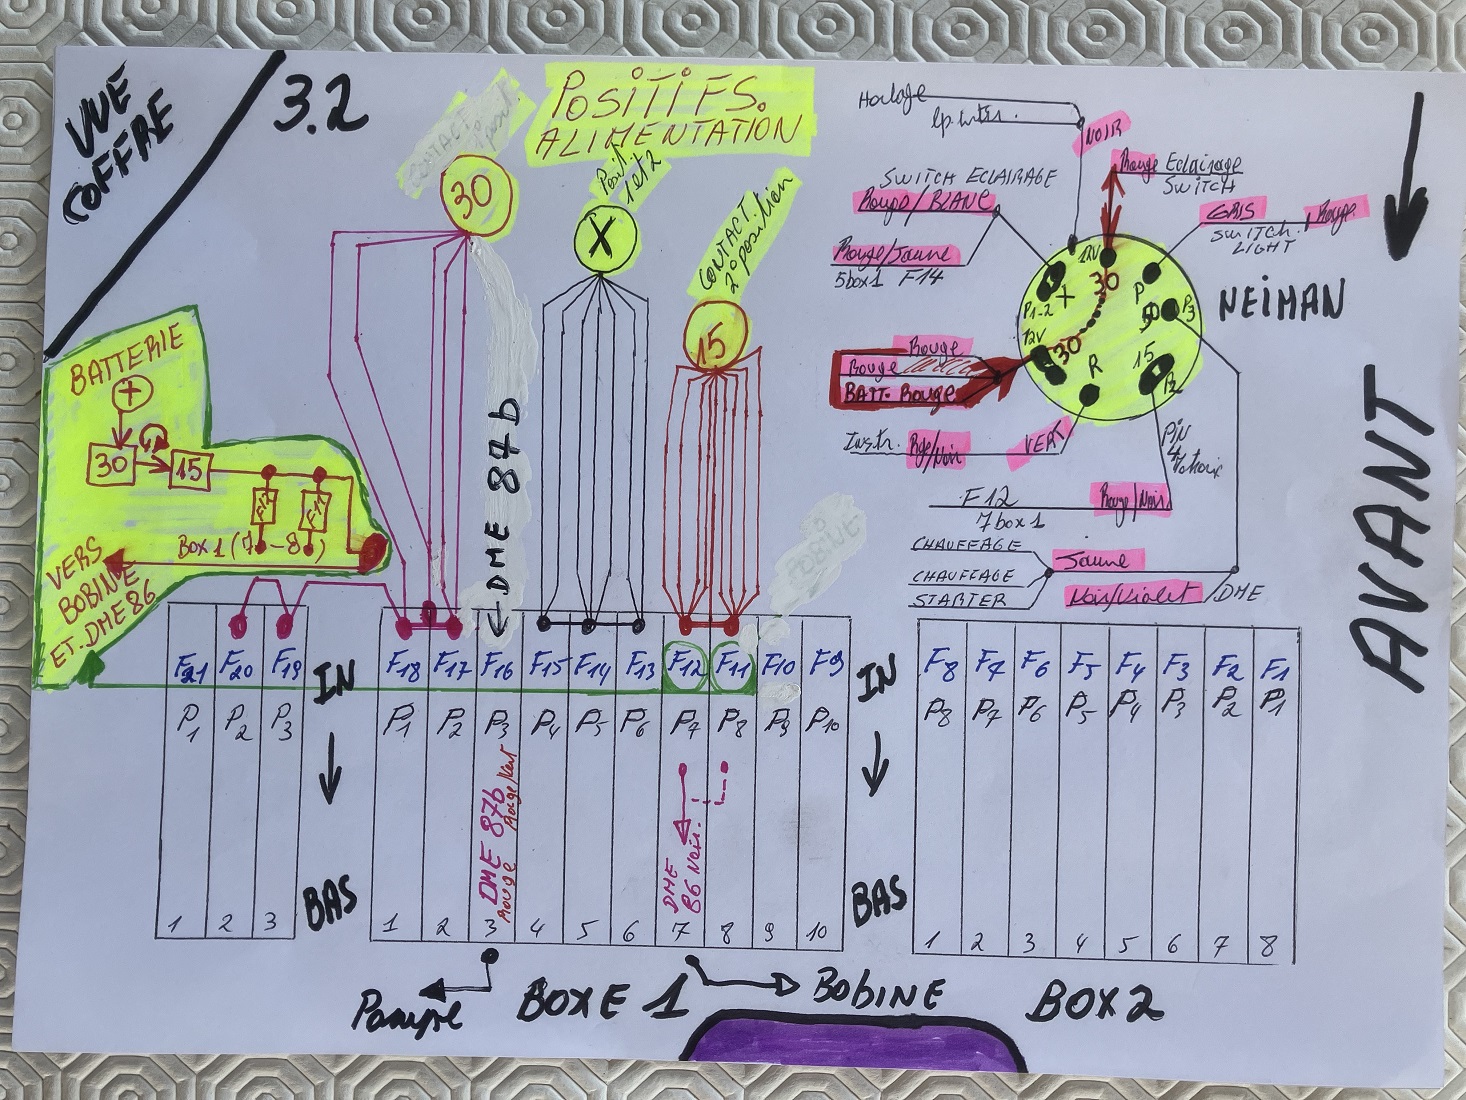 VUE
COFFRE
3.2
POSITIFS.
ALIMENTATION
30
X
Posit
1 et 2
CONTACT.
2º position
15
BATTERIE
+
30
15
F12
F11
Box 1 (7-8)
VERS
BOBINE
ET. DME 86
← DME 87b
BOBINE
Horloge
NOIR
Rouge Eclairage
SWITCH
SWITCH ECLAIRAGE
Rouge/BLANC
Rouge/Jaune
5 box 1 F14
GRIS
Rouge
SWITCH.
LIGHT
NEIMAN
12V
30
X
P1-2
P
50
P3
12V
30
R
15
P2
Rouge
Rouge
BATT. Rouge
Instr. Rge/Noir
VERT
PIN
4
F12
Rouge/Noir
7 box 1
CHAUFFAGE
Jaune
CHAUFFAGE
STARTER
Noir/Violet
DME
AVANT
F21 F20 F19
IN
F18 F17 F16 F15 F14 F13 F12 F11 F10 F9
IN
F8 F7 F6 F5 F4 F3 F2 F1
P1 P2 P3
P1 P2 P3 P4 P5 P6 P7 P8 P9 P10
P8 P7 P6 P5 P4 P3 P2 P1
DME 87b
Rouge
Rouge/Vert
DME
86 Noir.
BAS
BAS
1 2 3
1 2 3 4 5 6 7 8 9 10
1 2 3 4 5 6 7 8
Pompe
BOXE 1
BOBINE
BOX 2